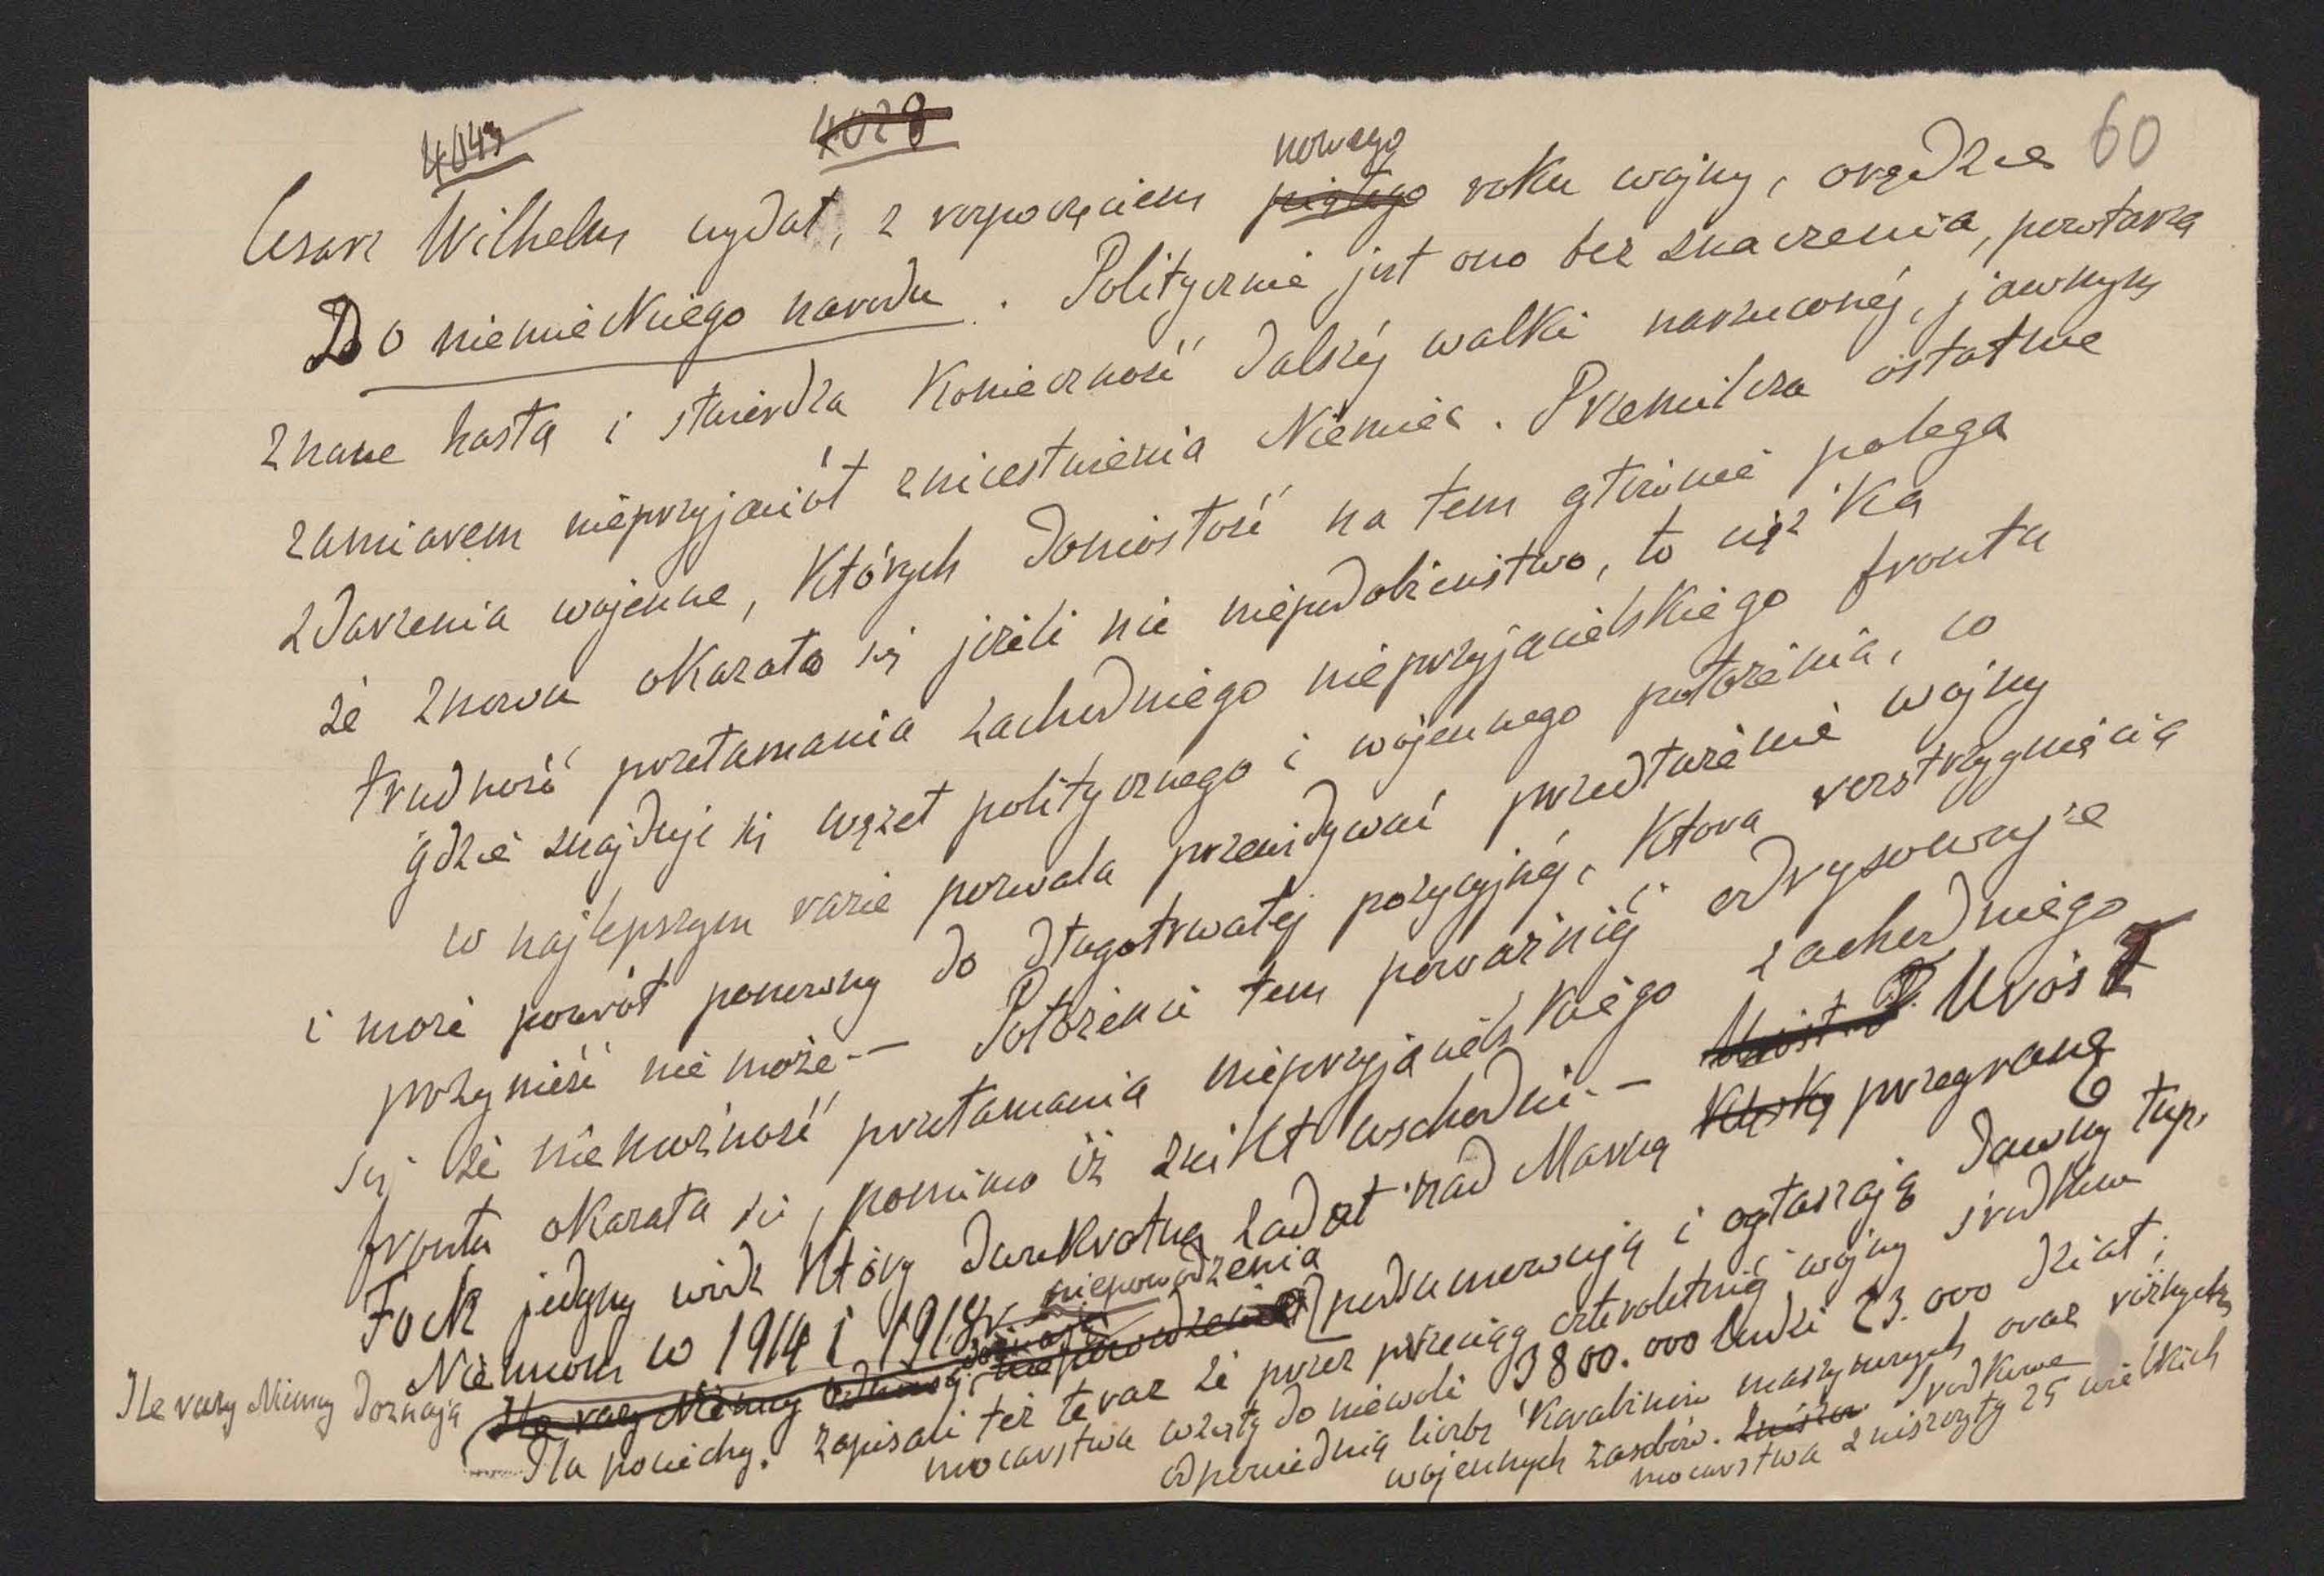 4043 4028 60
nowego
Cesarz Wilhelm wydał, z rozpoczęciem piątego roku wojny, orędzie
Do niemieckiego narodu. Politycznie jest ono bez znaczenia, powtarza
znane hasła i stwierdza konieczność dalszéj walki narzuconéj, jawnym
zamiarem nieprzyjaciół zniestwienia Niemiec. Przemilcza ostatnie
zdarzenia wojenne, których doniosłość na tem głównie polega
że znowu okazała się jeżeli nie niepodobieństwo, to ciężka
trudność przełamania zachodniego nieprzyjacielskiego frontu
gdzie znajduje się węzeł politycznego i wojennego położenia, co
w najlepszym razie pozwala przewidywać przedłużenie wojny
i może powrót ponowny do długotrwałéj pozycyjnéj, która rozstrzygnięcia
przynieść nie może. — Położenie tem poważniéj odrysowuje
się że niemożność przełamania nieprzyjacielskiego zachodniego
frontu okazała się, pomimo iż znikł wschodni. — Urósł
Foch jedyny wódz który dwukrotną zadał nad Marną klęskę przegraną
Niemcom w 1914 i 1918 r.
niepowodzenia
Ile razy Niemcy doznają Ile razy Niemcy niepowodzenia podsumowują i ogłaszają dawny łup,
Dla pociechy. zapisali też teraz że przez przeciąg czteroletniéj wojny środkowe
mocarstwa wzięły do niewoli 3800.000 ludzi 23.000 dział;
odpowiednią liczbę karabinów maszynowych oraz różnych
wojennych zasobów. Środkowe
mocarstwa zniszczyły 25 wielkich